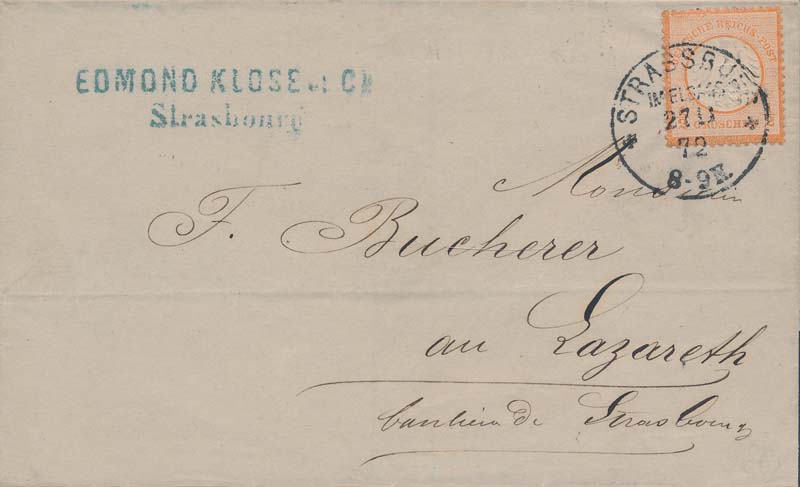 EDMOND KLOSE & Cie
Strasbourg
STRASSBURG
IM ELSASS
27 11
72
8-9 N.
REICHS-POST
GROSCHEN
Monsieur
F. Bucherer
au Lazareth
banlieu de Strasbourg